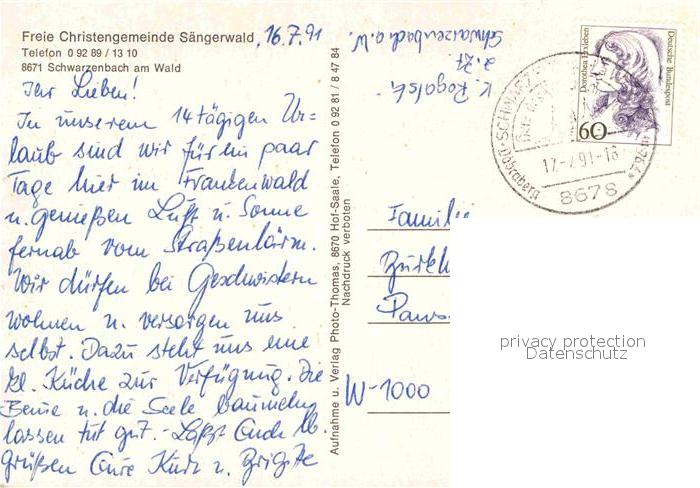 Freie Christengemeinde Sängerwald
Telefon 0 92 89 / 13 10
8671 Schwarzenbach am Wald
16.7.91
Ihr Lieben!
In unserem 14tägigen Ur=
laub sind wir für ein paar
Tage hier im Frankenwald
u. genießen Luft u. Sonne
fernab vom Straßenlärm.
Wir dürfen bei Geschwistern
wohnen u. versorgen uns
selbst. Dazu steht uns eine
kl. Küche zur Verfügung. Die
Beine u. die Seele baumeln
lassen tut gut. - Laßt Euch lb.
grüßen Eure Kurt u. Brigitte
Aufnahme u. Verlag Photo-Thomas, 8670 Hof-Saale, Telefon 0 92 81 / 8 47 84
Nachdruck verboten
K. Rogalski
z.Zt.
Schwarzenbach a. W.
Dorothea Erxleben
Deutsche Bundespost
60
Döbraberg
17.-7.91-18
8678
Familie
W-1000
privacy protection
Datenschutz